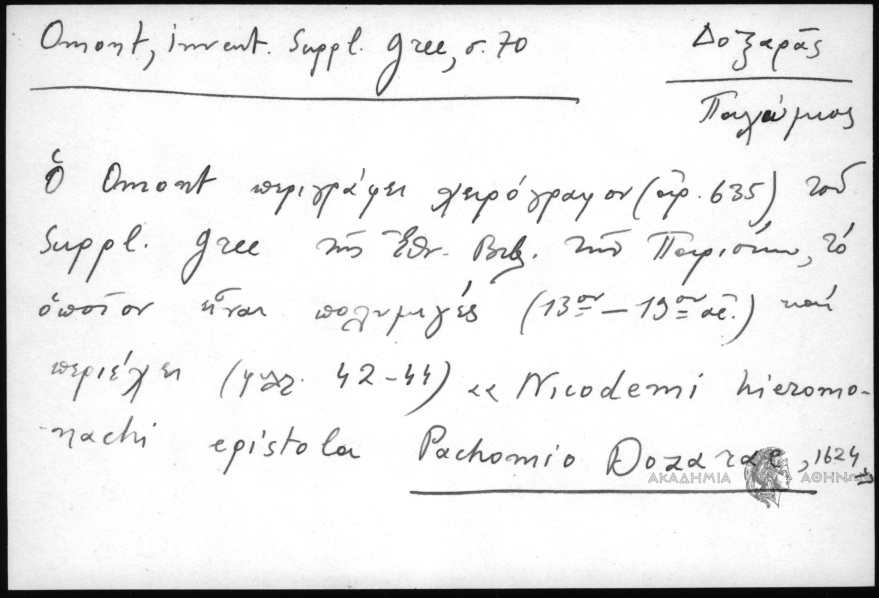 Omont, invent. Suppl. Grec, σ. 70
Δοξαρᾶς
Παχώμιος
Ὁ Omont περιγράφει χειρόγραφον (ἀρ. 635) τοῦ
Suppl. Grec τῆς Ἐθν. Βιβ. τῶν Παρισίων, τὸ
ὁποῖον εἶναι πολυμιγές (13ου – 19ου αἰ.) καὶ
περιέχει (φύλ. 42-44) «Nicodemi hieromo-
nachi epistola Pachomio Doxarae, 1624
ΑΚΑΔΗΜΙΑ ΑΘΗΝΩΝ